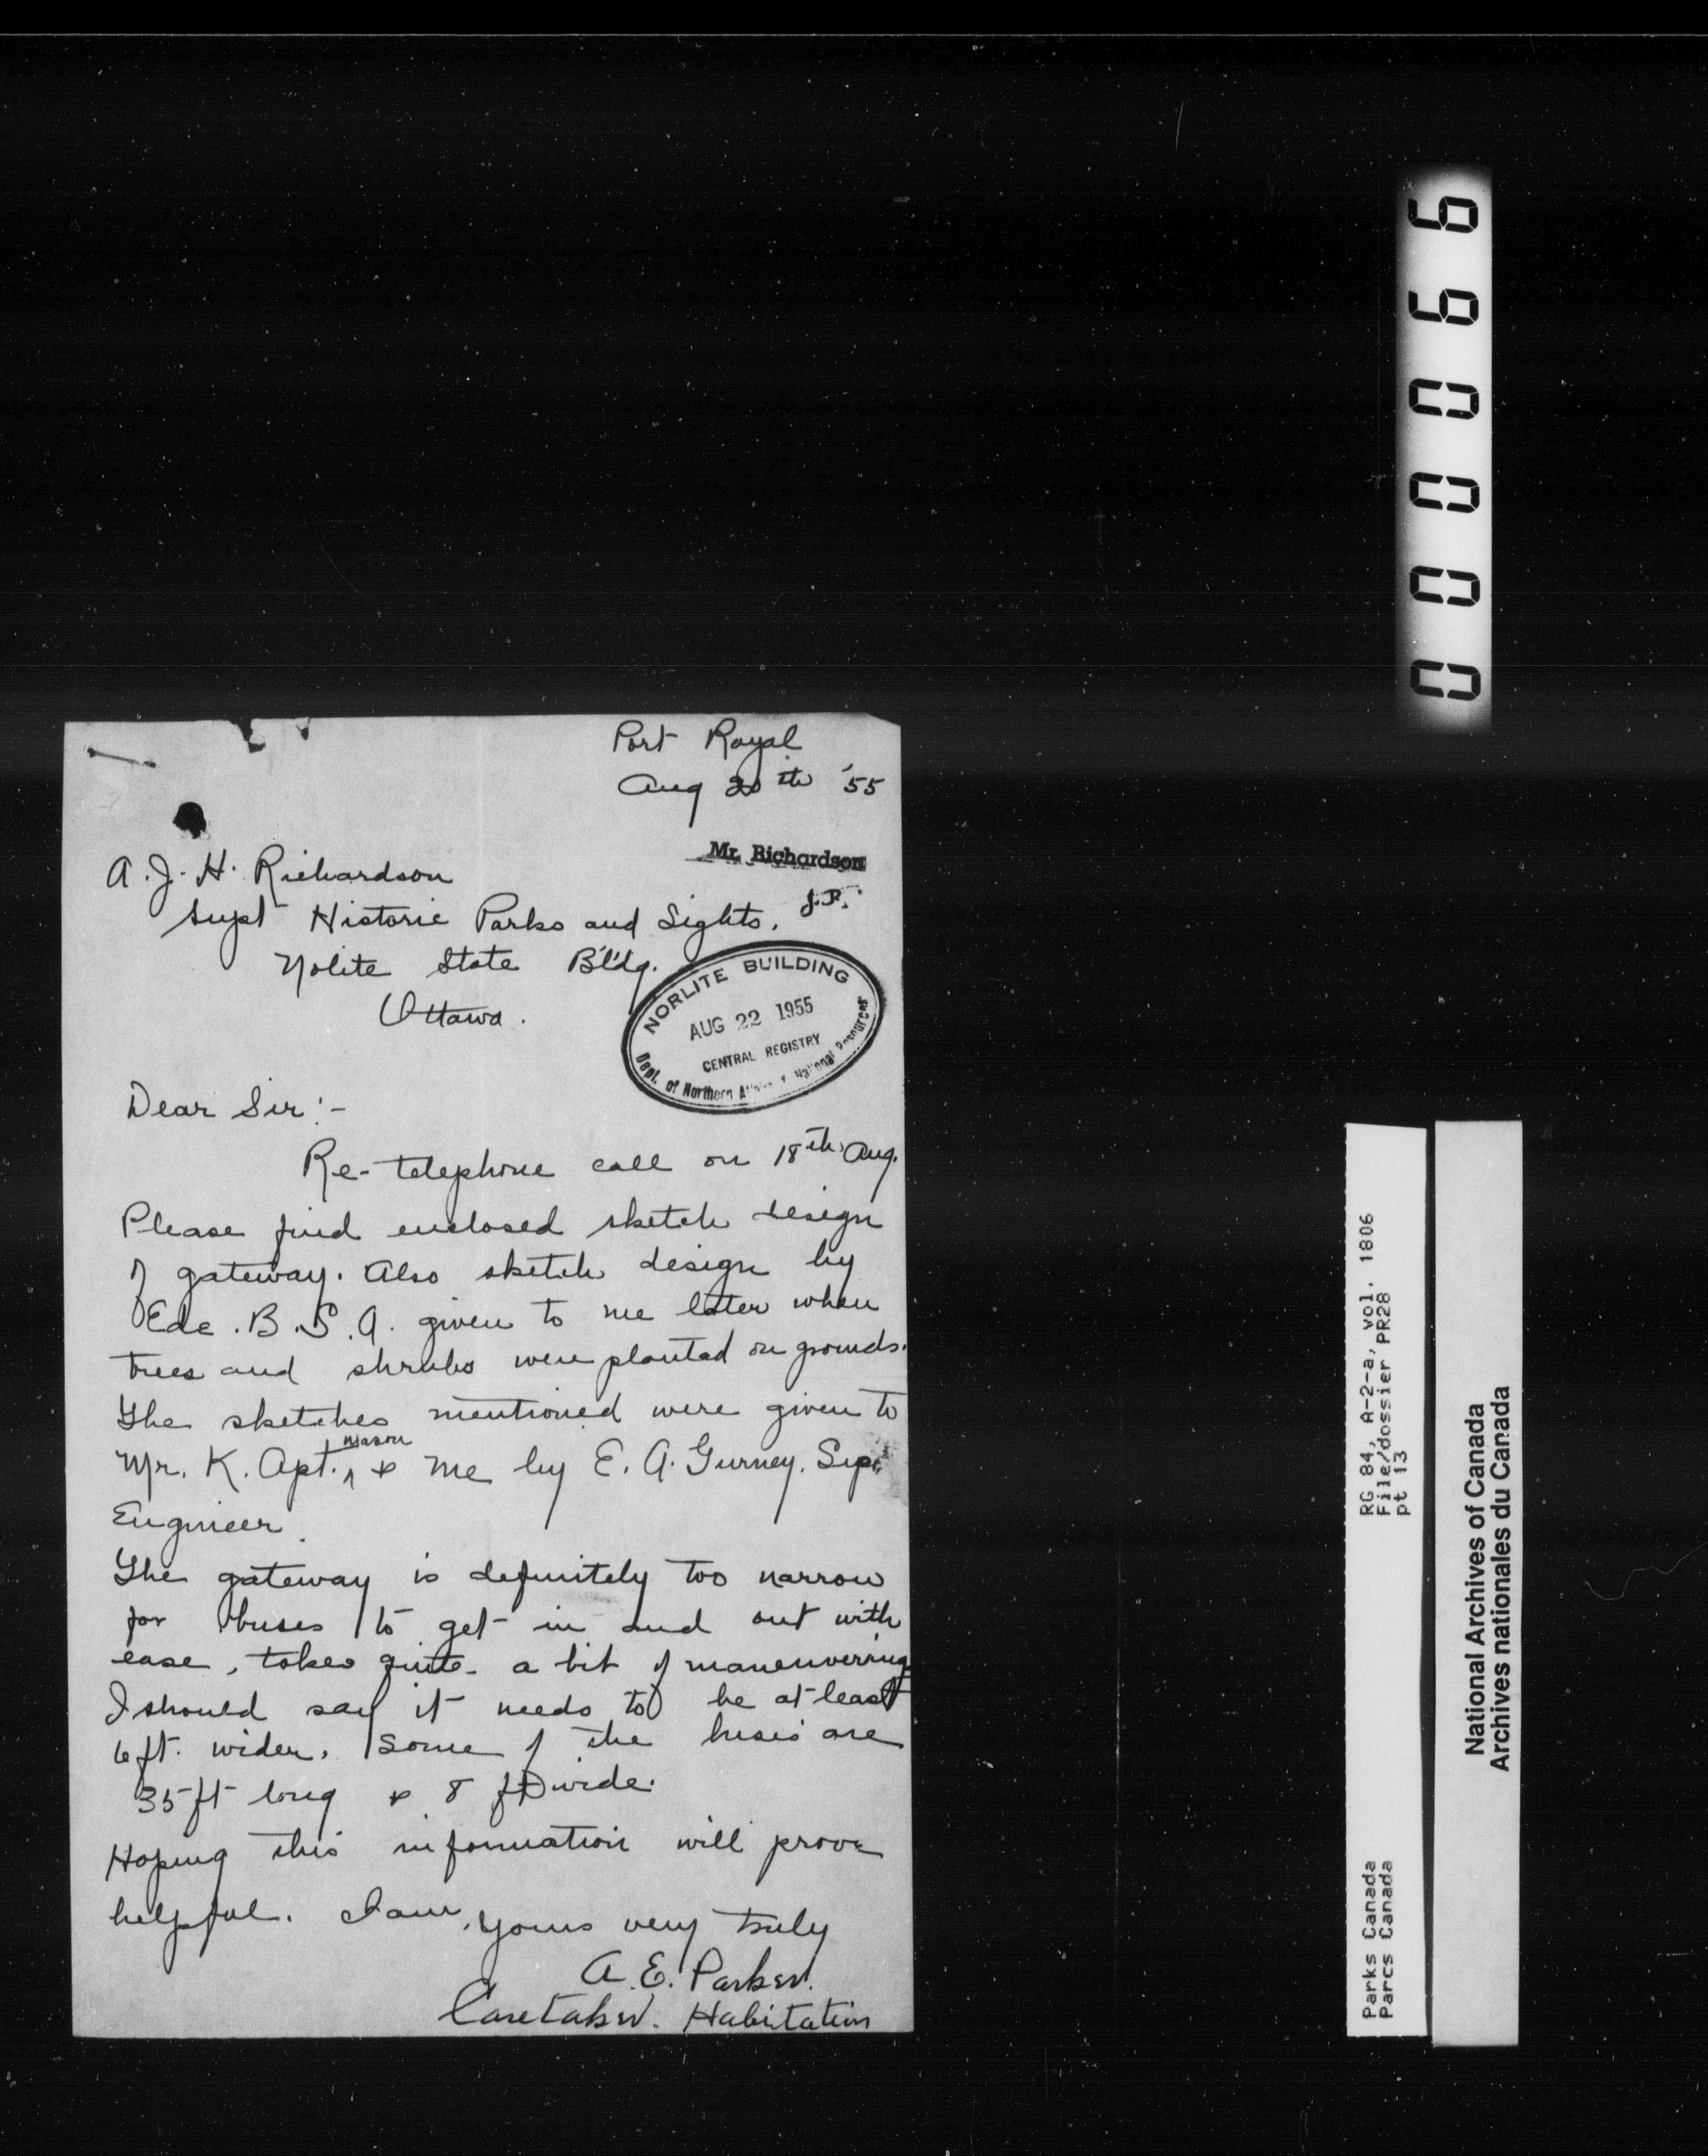 Port Royal
Aug 20th '55
Mr. Richardson
J.P.
A. J. H. Richardson
Supt Historic Parks and Sights.
Nolite State Bldg.
Ottawa.
NORLITE BUILDING
AUG 22 1955
CENTRAL REGISTRY
Dept. of Northern Affairs & National Resources
Dear Sir:-
Re-telephone call on 18th Aug.
Please find enclosed sketch design
of gateway. Also sketch design by
Ede. B.S.A. given to me later when
trees and shrubs were planted on grounds.
The sketches mentioned were given to
Mr. K. Apt. mason & me by E. A. Gurney. Sup.
Engineer.
The gateway is definitely too narrow
for buses to get in and out with
ease, takes quite a bit of maneuvering
I should say it needs to be at least
6 ft. wider. Some of the buses are
35 ft long & 8 ft wide.
Hoping this information will prove
helpful. I am, yours very truly
A. E. Parker.
Caretaker. Habitation
000066
RG 84, A-2-a, vol. 1806
File/dossier PR28
pt 13
Parks Canada
Parcs Canada
National Archives of Canada
Archives nationales du Canada